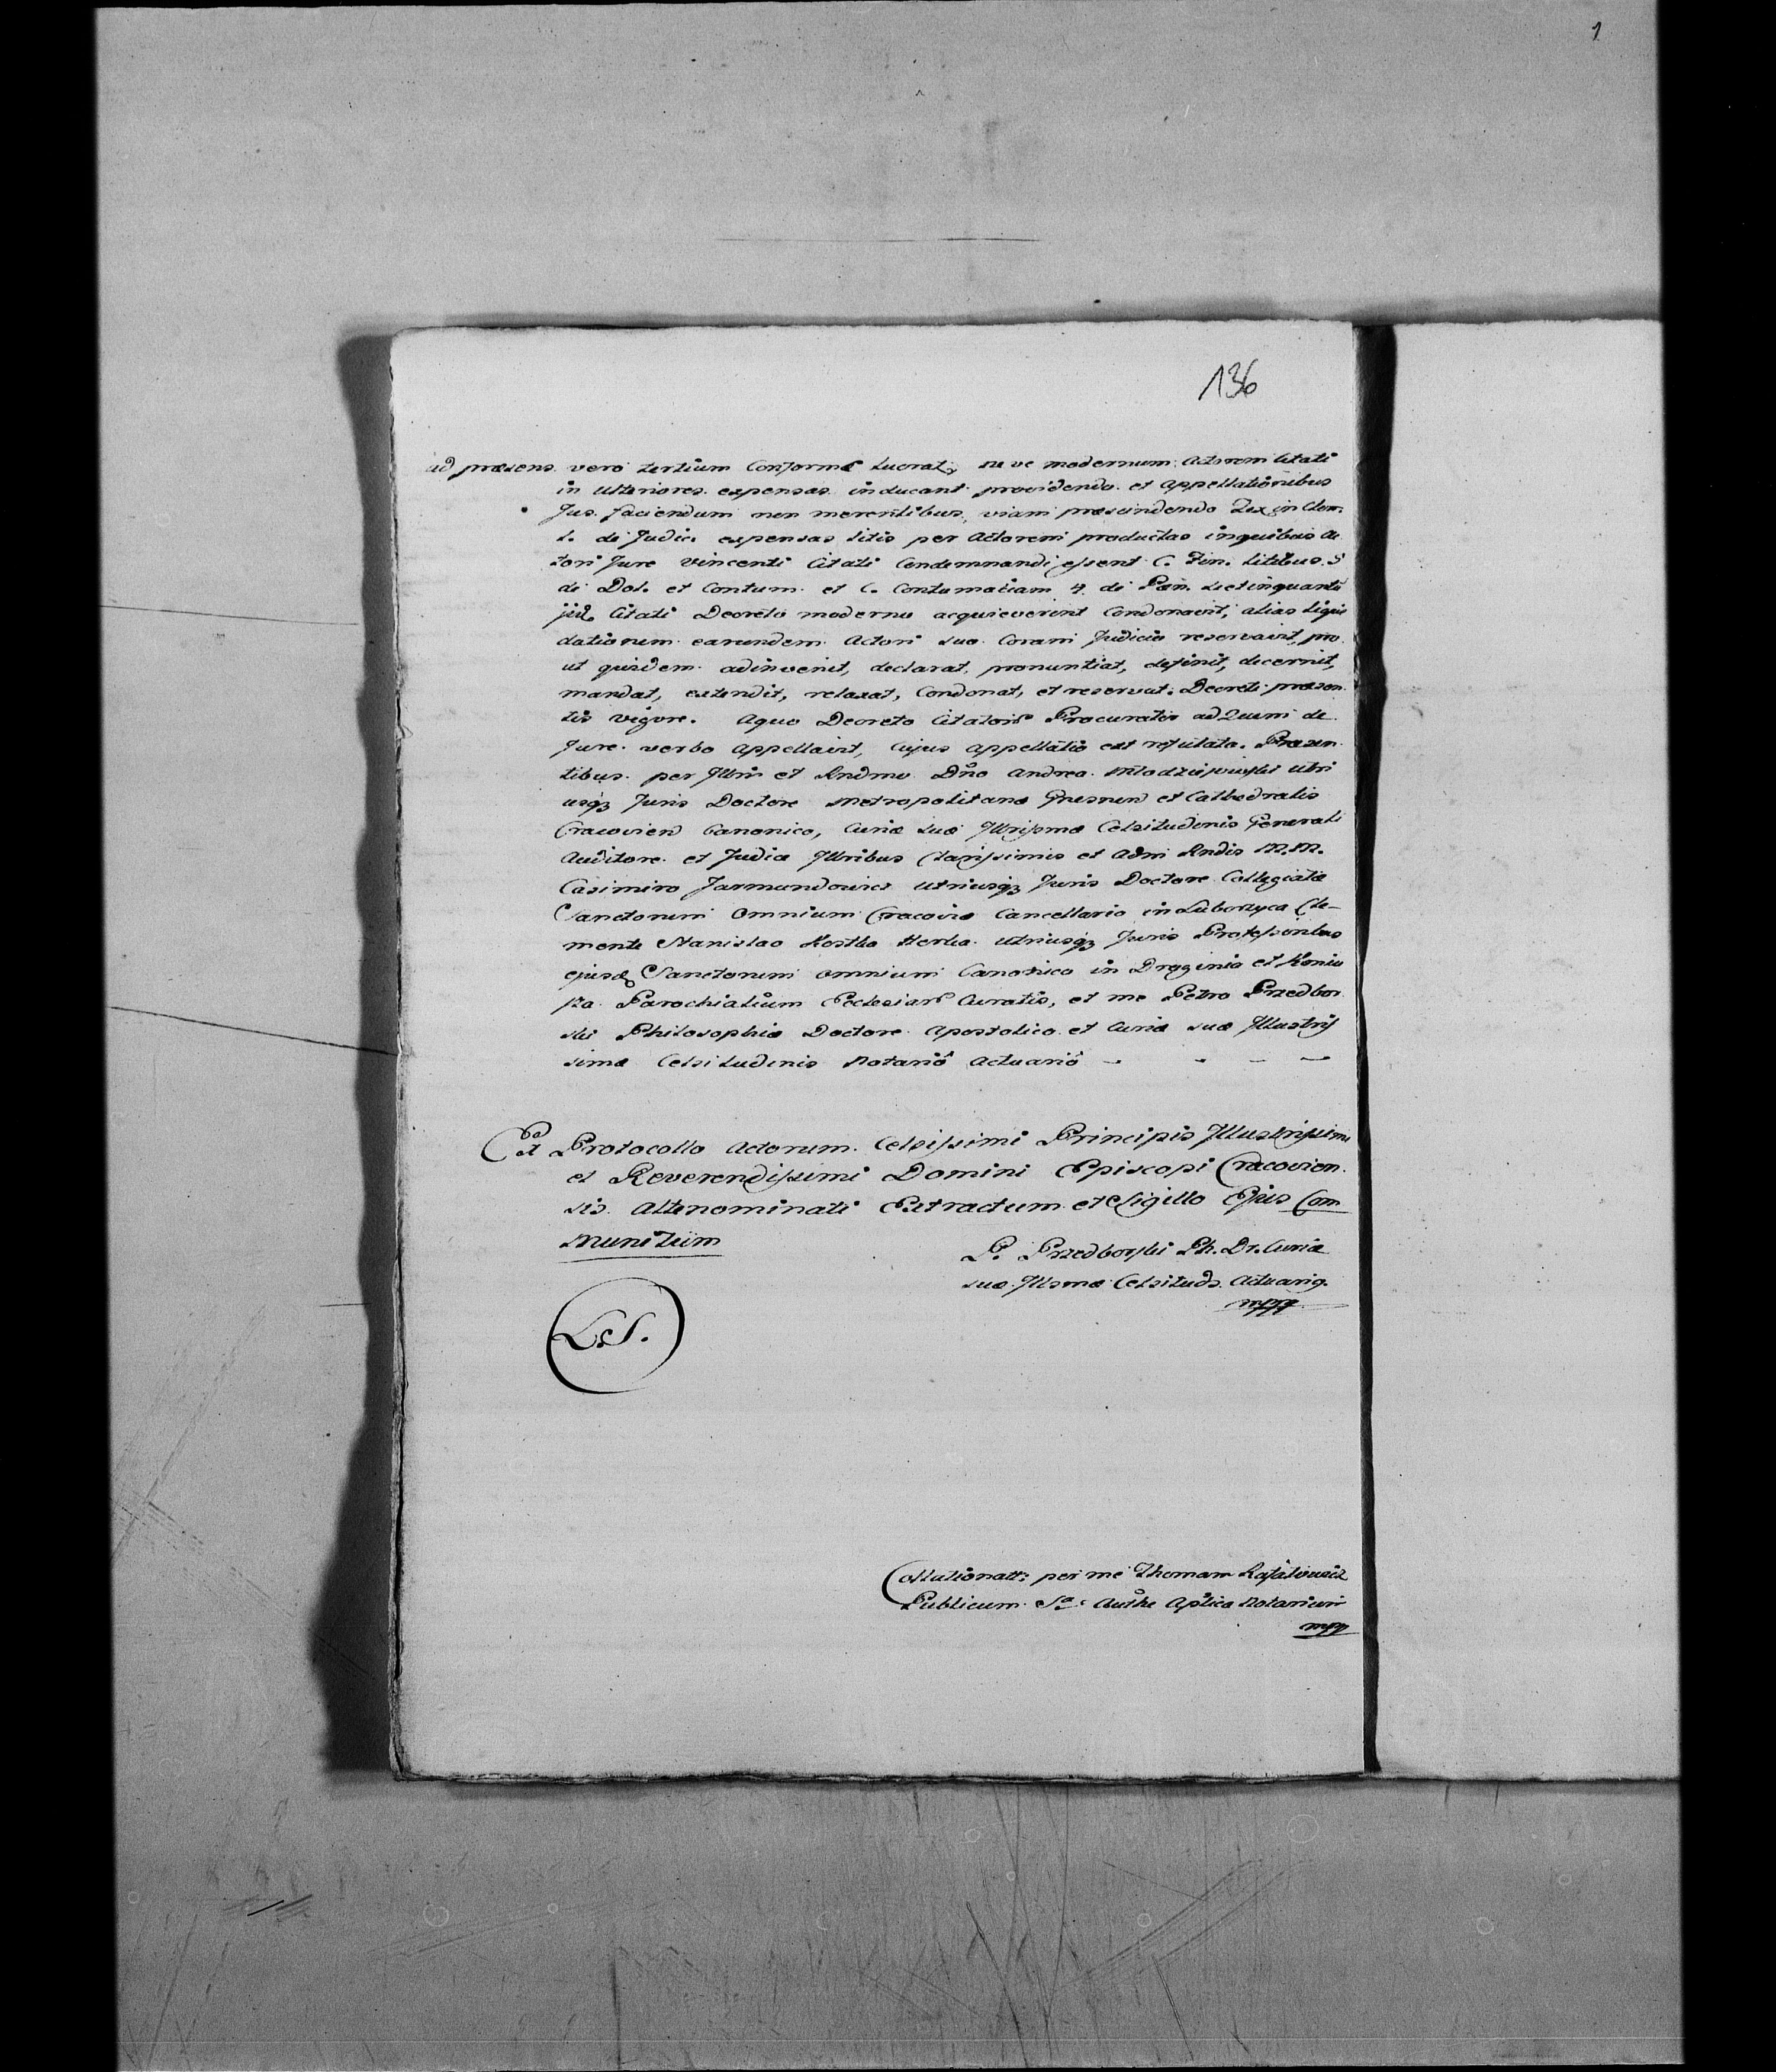 1
136
ad præsens vero tertium Conforme lucrat, ne ve modernum Actorem Citati
in ulteriores expensas inducant providendo et appellationibus
Jus faciendum non merentibus, viam præscindendo Lex in Clem.
1. de Judic. expensas litis per Actorem productas in quibus Ac
tori Jure vincenti Citati Condemnandi essent C. Fin. litibus 5
de Dol. et Contum. et C. Contumaciam 4. de Pœn. et inquantũ
iid. Citati Decreto moderno acquieverint Condonavit, alias liqui
dationem earundem Actori suo Coram Judicio reservavit, pro
ut quidem adinvenit, declarat, pronuntiat, definit, decernit,
mandat, extendit, relaxat, Condonat, et reservat. Decreti præsen
tis vigore. A quo Decreto Citator. Procurator ad Quem de
Jure verbo appellavit, Cujus appellatio est refutata. Præsen
tibus per Illrm et Rndmo Dño Andrea Młodziejowski utri
usq3 Juris Doctore Metropolitanæ Gnesnen et Cathedralis
Cracovien Canonico, Curiæ suæ Illrismæ Celsitudinis Generali
Auditore et Judice Illribus Clarissimis et Adm Rndis M.M.
Casimiro Jarmundowicz utriusq3 Juris Doctore Collegiatæ
Sanctorum Omnium Cracoviæ Cancellario in Luborzyca Cle-
mente Stanislao Kostka Herka utriusq3 Juris Professoribus
ejusd. Sanctorum Omnium Canonico in Draginia et Koniu
sza Parochialium Ecclesiar. Curatis, et me Petro Przedbor
ski Philosophiæ Doctore Apostolico et Curiæ suæ Illustris
simæ Celsitudinis Notariô Actuariô - - - -
Ex Protocollo Actorum Celsissimi Principis Illustrissimi
et Reverendissimi Domini Episcopi Cracovien
sis Altenominati Extractum et Sigillo Ejus Com
munitum
P. Przedborski Ph. Dr. Curiæ
suæ Illsmæ Celsitud. Actuarig.
mpp
L.S.
Collationatt: per me Thomam Rafałowicz
Publicum Sa: Autħe Aplica Notarium
mpp